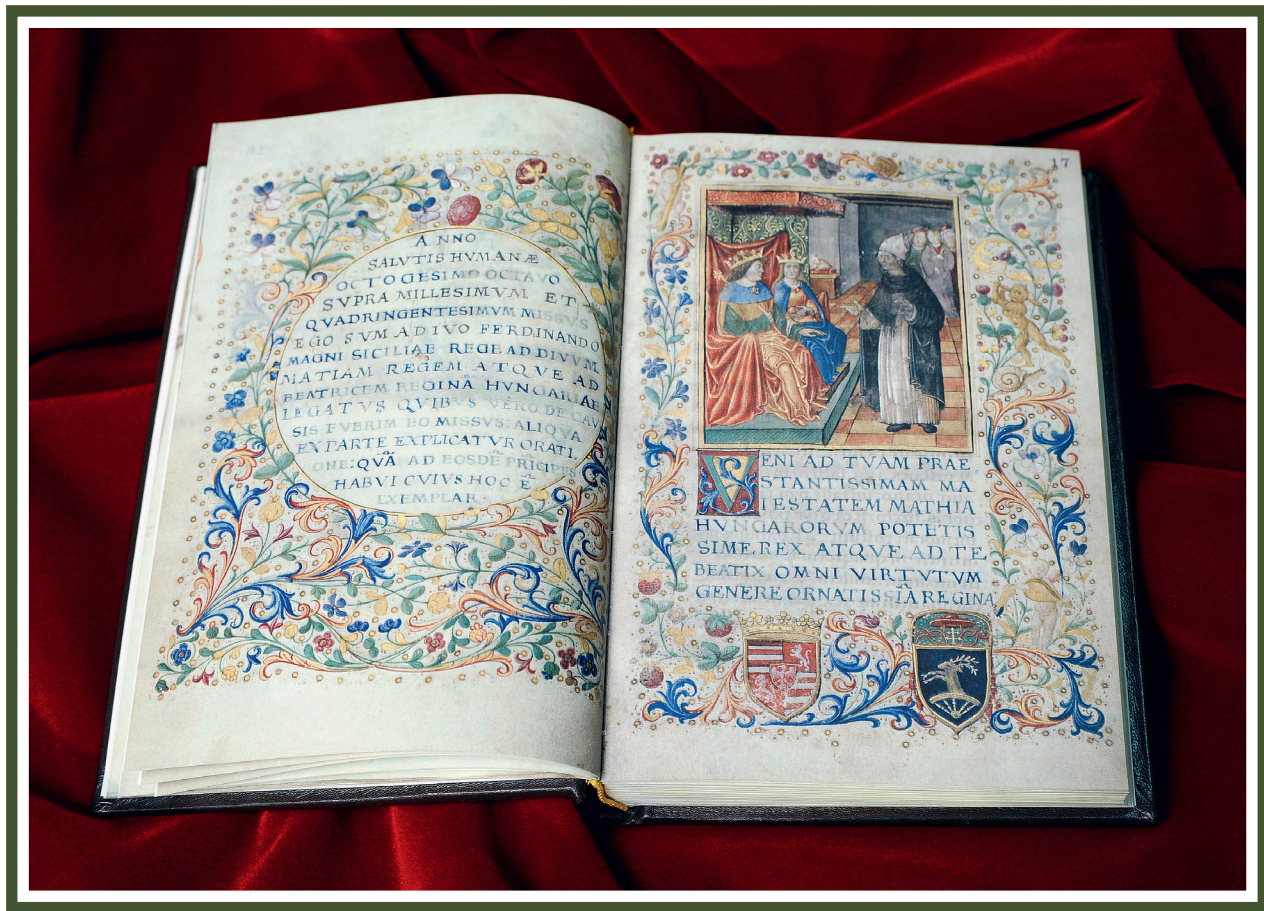 ANNO
SALVTIS HVMANÆ
OCTOGESIMO OCTAVO
SVPRA MILLESIMVM ET
QVADRINGENTESIMVM MISSVS
EGO SVM AD IVO FERDINANDO
MAGNI SICILIAE REGE AD DIVVM
MATIAM REGEM ATQVE AD
BEATRICEM REGINĀ HVNGARIAE
LEGATVS QVIBVS VERO DE CAV
SIS FVERIM EO MISSVS: ALIQVA
EX PARTE EXPLICATVR ORATI
ONE: QVĀ AD EOSDĒ PRĪCIPES
HABVI CVIVS HOC Ē
EXEMPLAR
17
VENI AD TVAM PRAE
STANTISSIMAM MA
IESTATEM MATHIA
HVNGARORVM POTĒTIS
SIME REX ATQVE AD TE
BEATIX OMNI VIRTVTVM
GENERE ORNATISSĪĀ REGINA